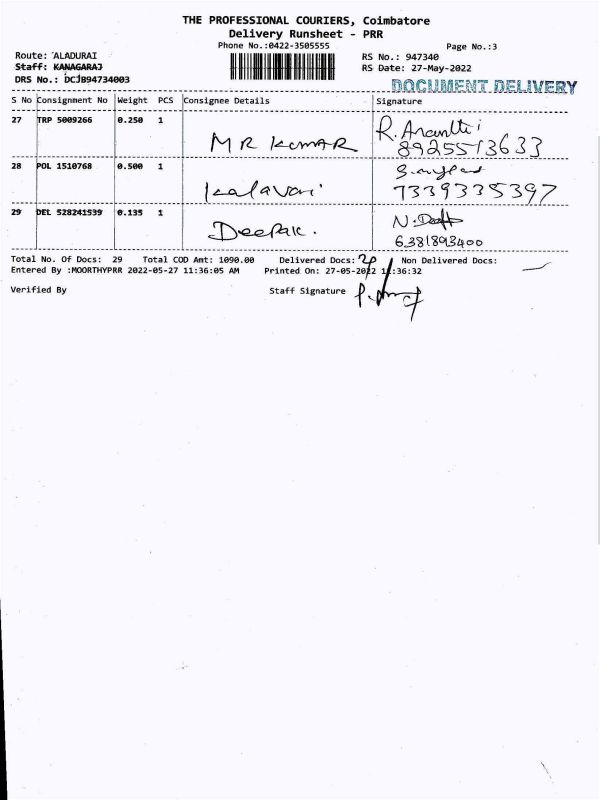 THE PROFESSIONAL COURIERS, Coimbatore
Delivery Runsheet - PRR
Phone No.:0422-3505555
Page No.:3
Route: ALADURAI
RS No.: 947340
Staff: KANAGARAJ
RS Date: 27-May-2022
DRS No.: DCJB94734003
DOCUMENT DELIVERY
S No Consignment No Weight PCS Consignee Details Signature
27 TRP 5009266 0.250 1 MR KUMAR R.
8925513633
28 POL 1510768 0.500 1 Kalavani
7339335397
29 DEL 528241539 0.135 1 Deepak. N.
6381893400
Total No. Of Docs: 29 Total COD Amt: 1090.00 Delivered Docs: Non Delivered Docs:
Entered By :MOORTHYPRR 2022-05-27 11:36:05 AM Printed On: 27-05-2022 11:36:32
Verified By Staff Signature